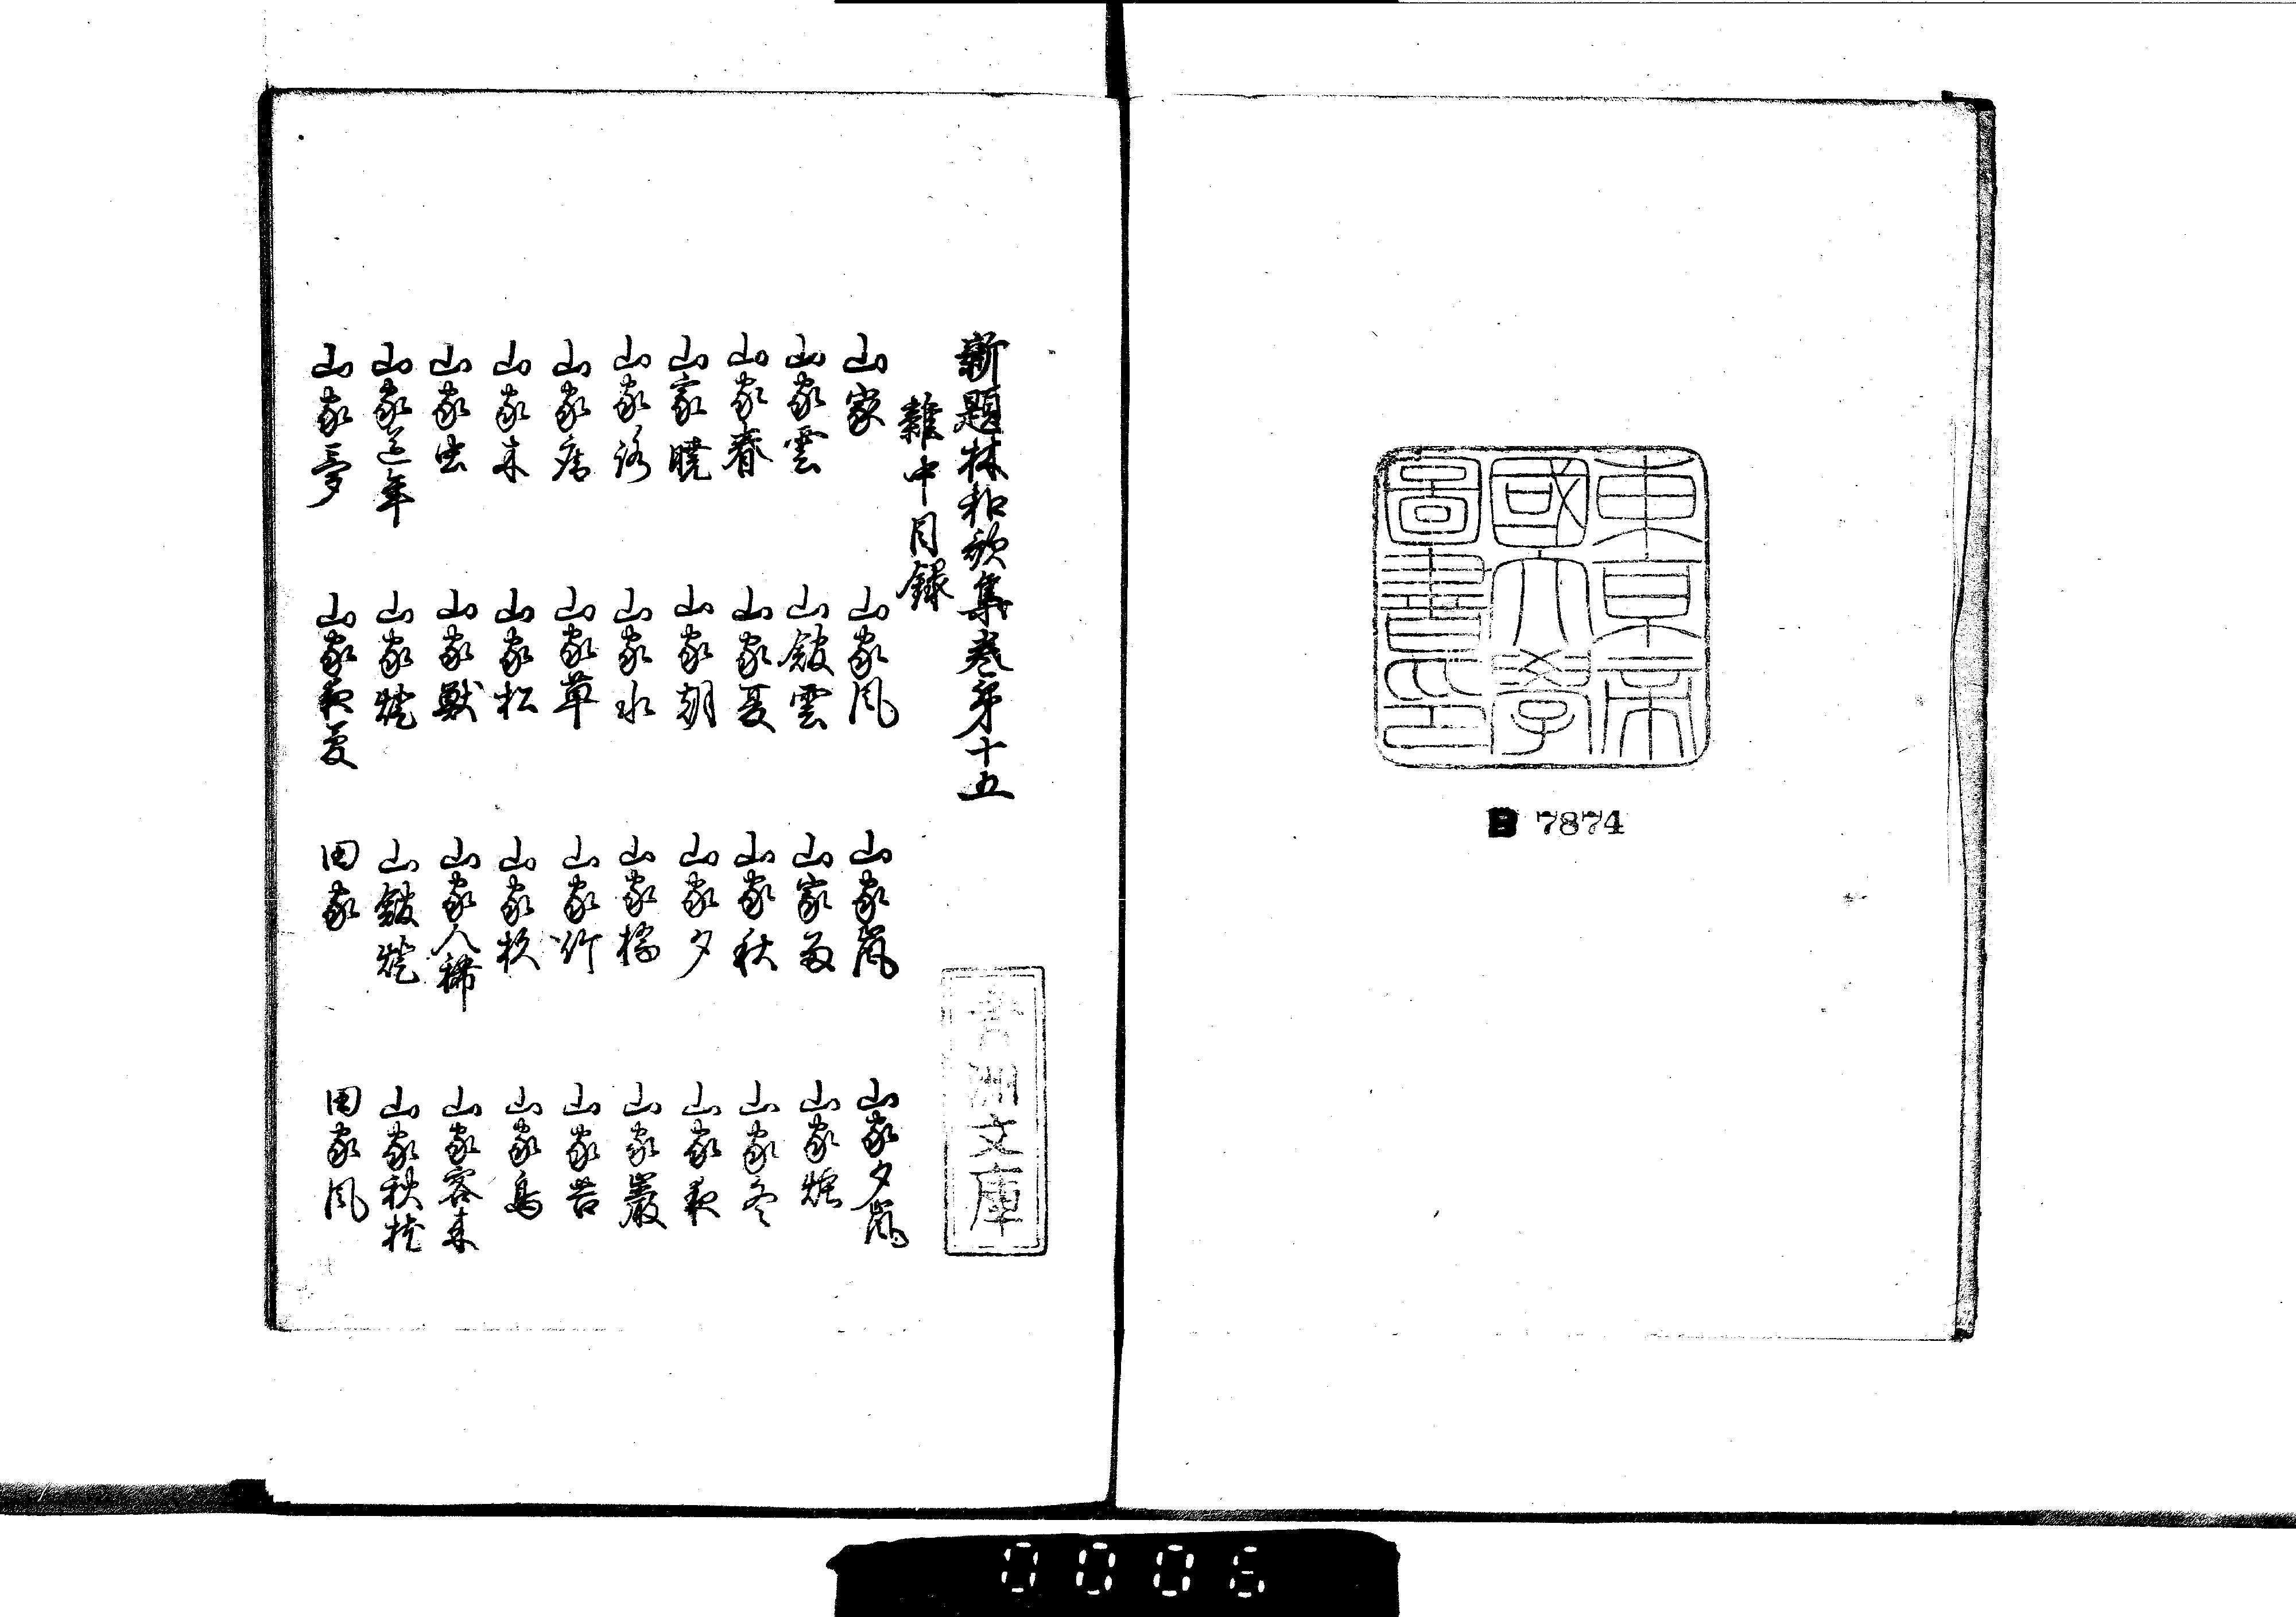 東京帝
國大學
圖書印
B 7874
新題林和歌集巻第十五
雜中目録
青洲文庫
山家 山家風 山家嵐 山家夕嵐
山家雲 山舘雲 山家雨 山家煙
山家春 山家夏 山家秋 山家冬
山家曉 山家朝 山家夕 山家夜
山家路 山家水 山家橋 山家巖
山家 山家草 山家竹 山家苔
山家 山家松 山家 山家鳥
山家虫 山家獣 山家人稀 山家客来
山家送年 山家燈 山舘燈 山家秋燈
山家夢 山家夜夢 田家 田家風
0006